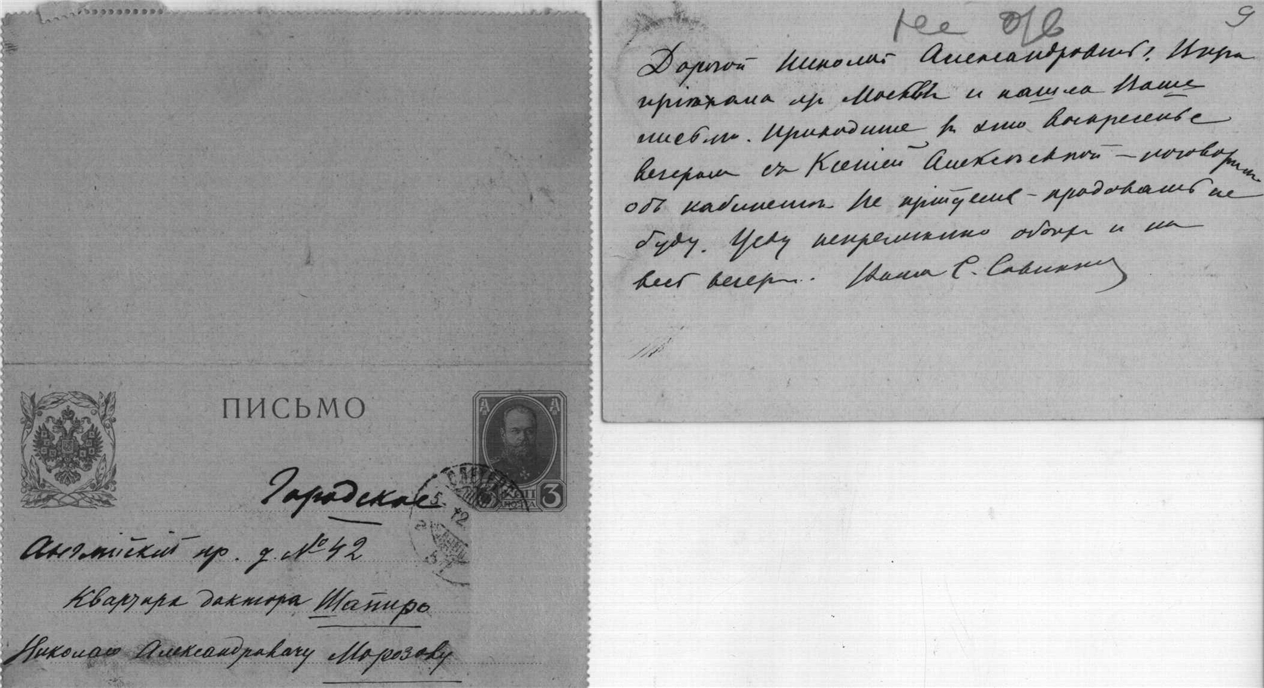 ПИСЬМО
Городское
Английскій пр. д. № 42
Квартира доктора Шапиро
Николаю Александровичу Морозову
КОП 3
9
Дорогой Николай Александровичъ! Вчера
пріѣхала изъ Москвы и нашла Ваше
письмо. Приходите въ это Воскресенье
вечеромъ съ Ксеніей Алексѣевной – поговоримъ
объ кабинетѣ. Не пріѣдете – продовать не
буду. Жду непремѣнно обоихъ и на
весь вечеръ. Ваша С. Савинкова